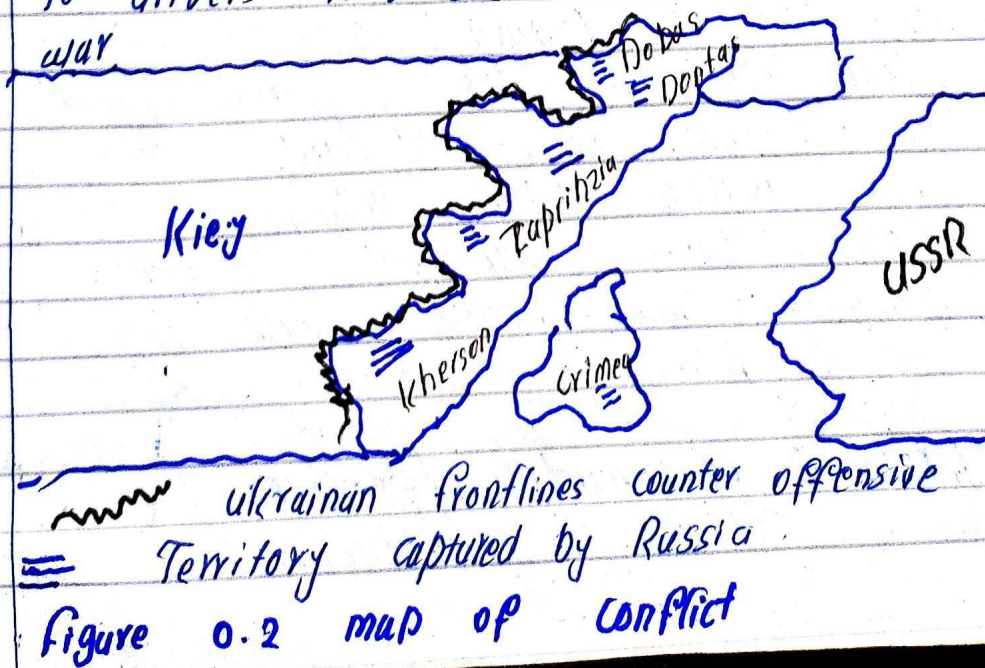 war
Dobas
Doptas
Zaprihzia
Kiey
USSR
Kherson
Crimea
ukrainan frontlines counter offensive
Territory captured by Russia.
figure 0.2 map of conflict